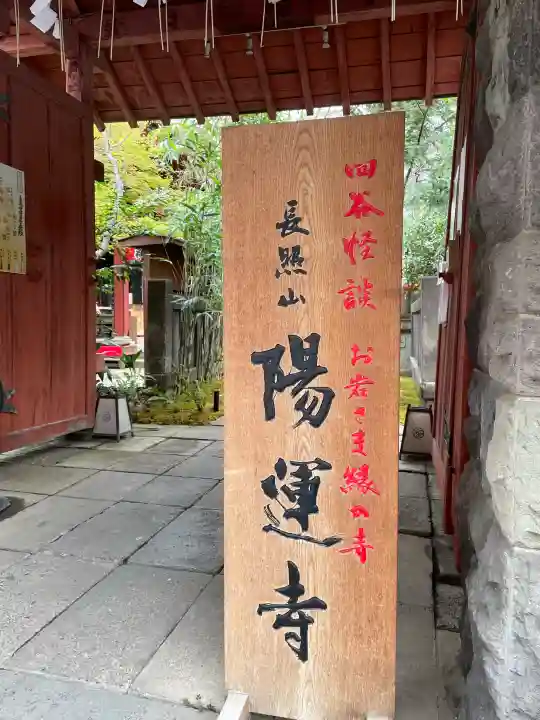 四谷怪談 お岩さま縁の寺
長照山
陽運寺